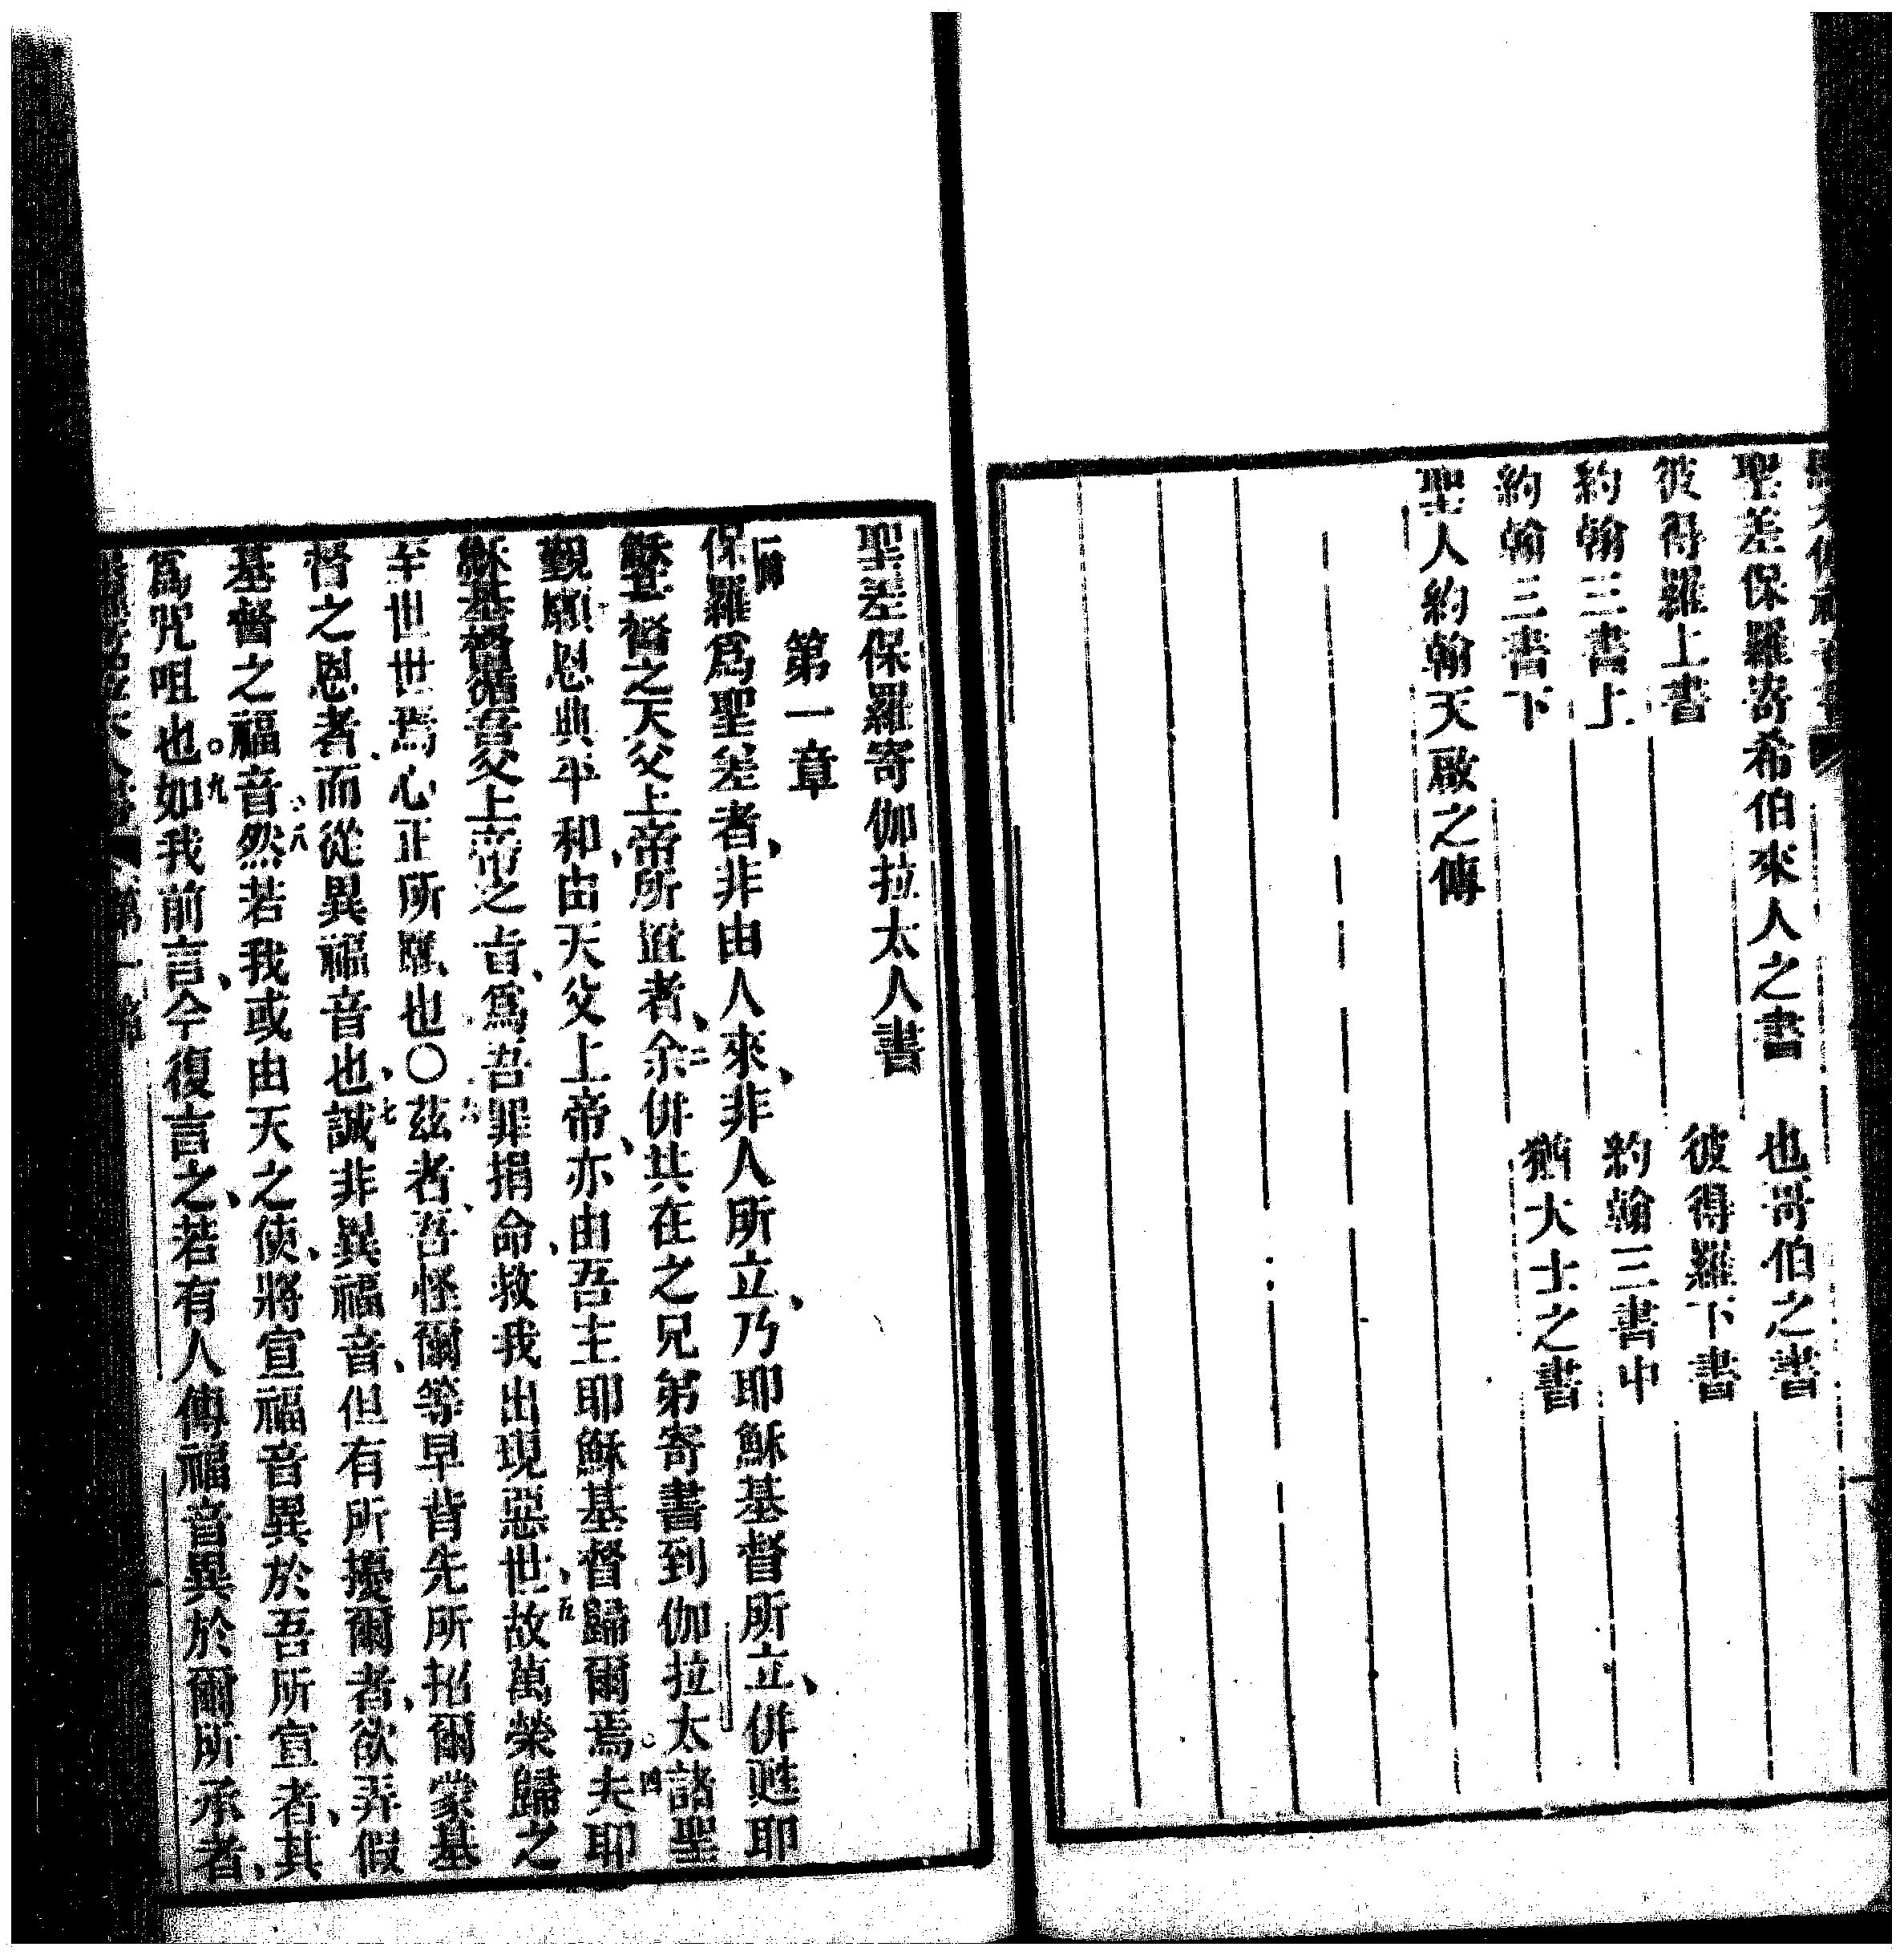 聖差保羅寄希伯來人之書　也哥伯之書
彼得羅上書　彼得羅下書
約翰三書上　約翰三書中
約翰三書下　猶大士之書
聖人約翰天啟之傳
聖差保羅寄伽拉太人書
第一章
保羅為聖差者、非由人來、非人所立、乃耶穌基督所立、併甦耶
穌基督之天父上帝所遣者、二余併其在之兄弟寄書到伽拉太諸聖
觀願恩典平和、由天父上帝、亦由吾主耶穌基督歸爾焉。四夫耶
穌基督循吾父上帝之旨、為吾罪捐命、救我出現惡世、五故萬榮歸之
至世世焉心正所願也〇茲者、吾怪爾等早背先所招爾蒙基
督之恩者、而從異福音也、七誠非異福音、但有所擾爾者、欲弄假
基督之福音。八然若我或由天之使、將宣福音異於吾所宣者、其
為咒咀也。九如我前言、今復言之、若有人傳福音異於爾所承者、